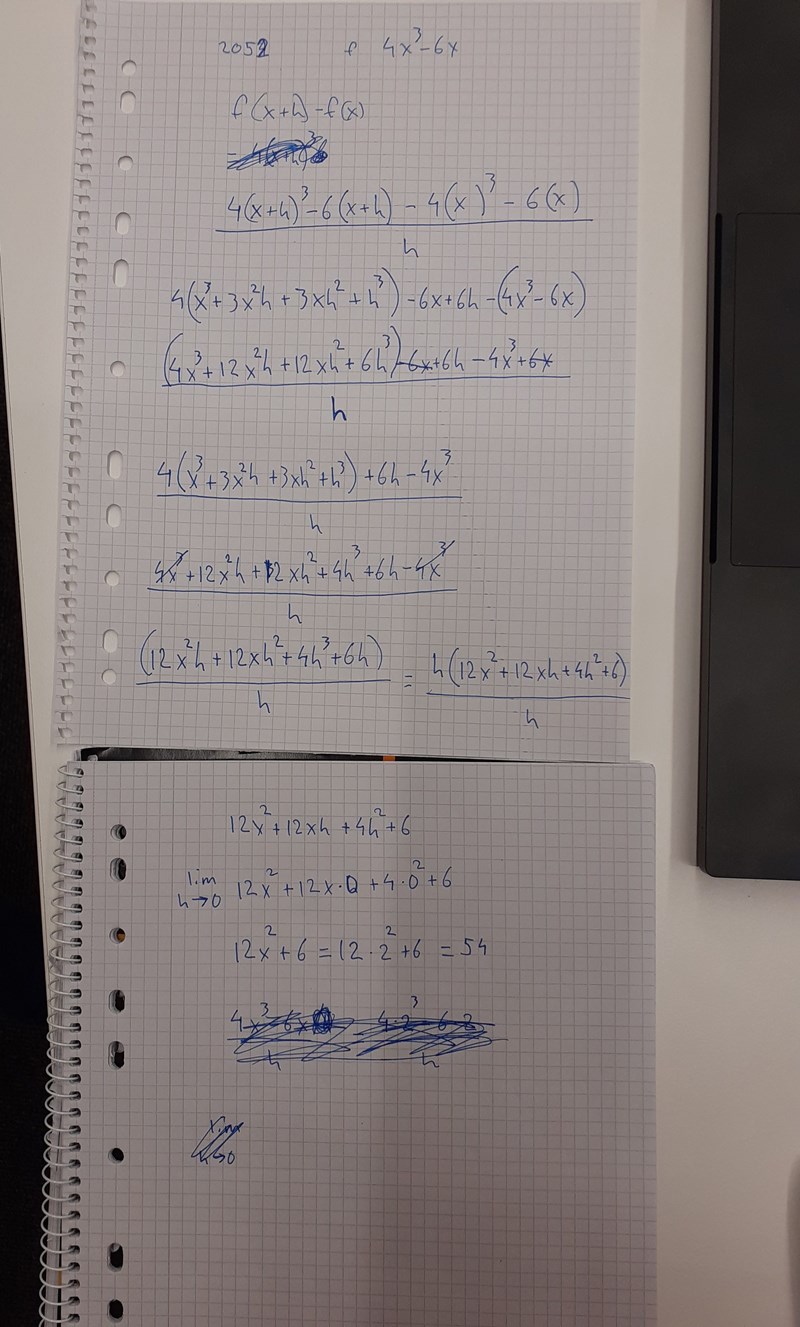 2052 f 4x³-6x
f(x+h)-f(x)
4(x+h)³-6(x+h) - 4(x)³ - 6(x)
h
4(x³+3x²h+3xh²+h³)-6x+6h-(4x³-6x)
(4x³+12x²h+12xh²+6h³)-6x+6h-4x³+6x
h
4(x³+3x²h+3xh²+h³)+6h-4x³
h
4x³+12x²h+12xh²+4h³+6h-4x³
h
(12x²h+12xh²+4h³+6h) = h(12x²+12xh+4h²+6)
h h
12x²+12xh+4h²+6
lim h→0 12x²+12x·0+4·0²+6
12x²+6=12·2²+6=54